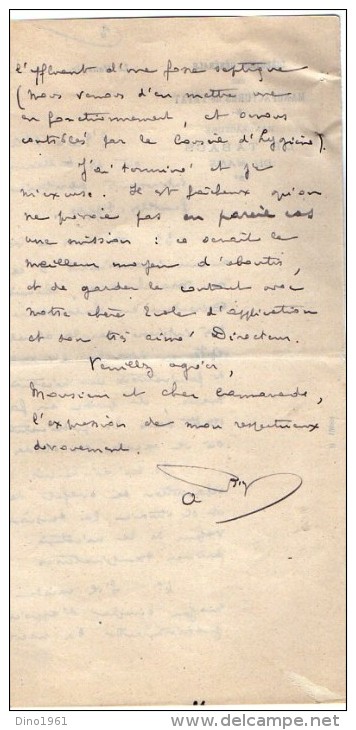 l'effluent d'une fosse septique
(nous venons d'en mettre une
en fonctionnement, et avons
contrôlés par le Conseil d'hygiène).
J'ai terminé et je
m'excuse. Il est fâcheux qu'on
ne prévoie pas en pareil cas
une mission : ce serait le
meilleur moyen d'aboutir,
et de garder le contact avec
notre chère Ecole d'application
et son très aimé Directeur.
Veuillez agréer,
Monsieur et cher camarade,
l'expression de mon respectueux
dévouement.
Dino1961
delcampe.net